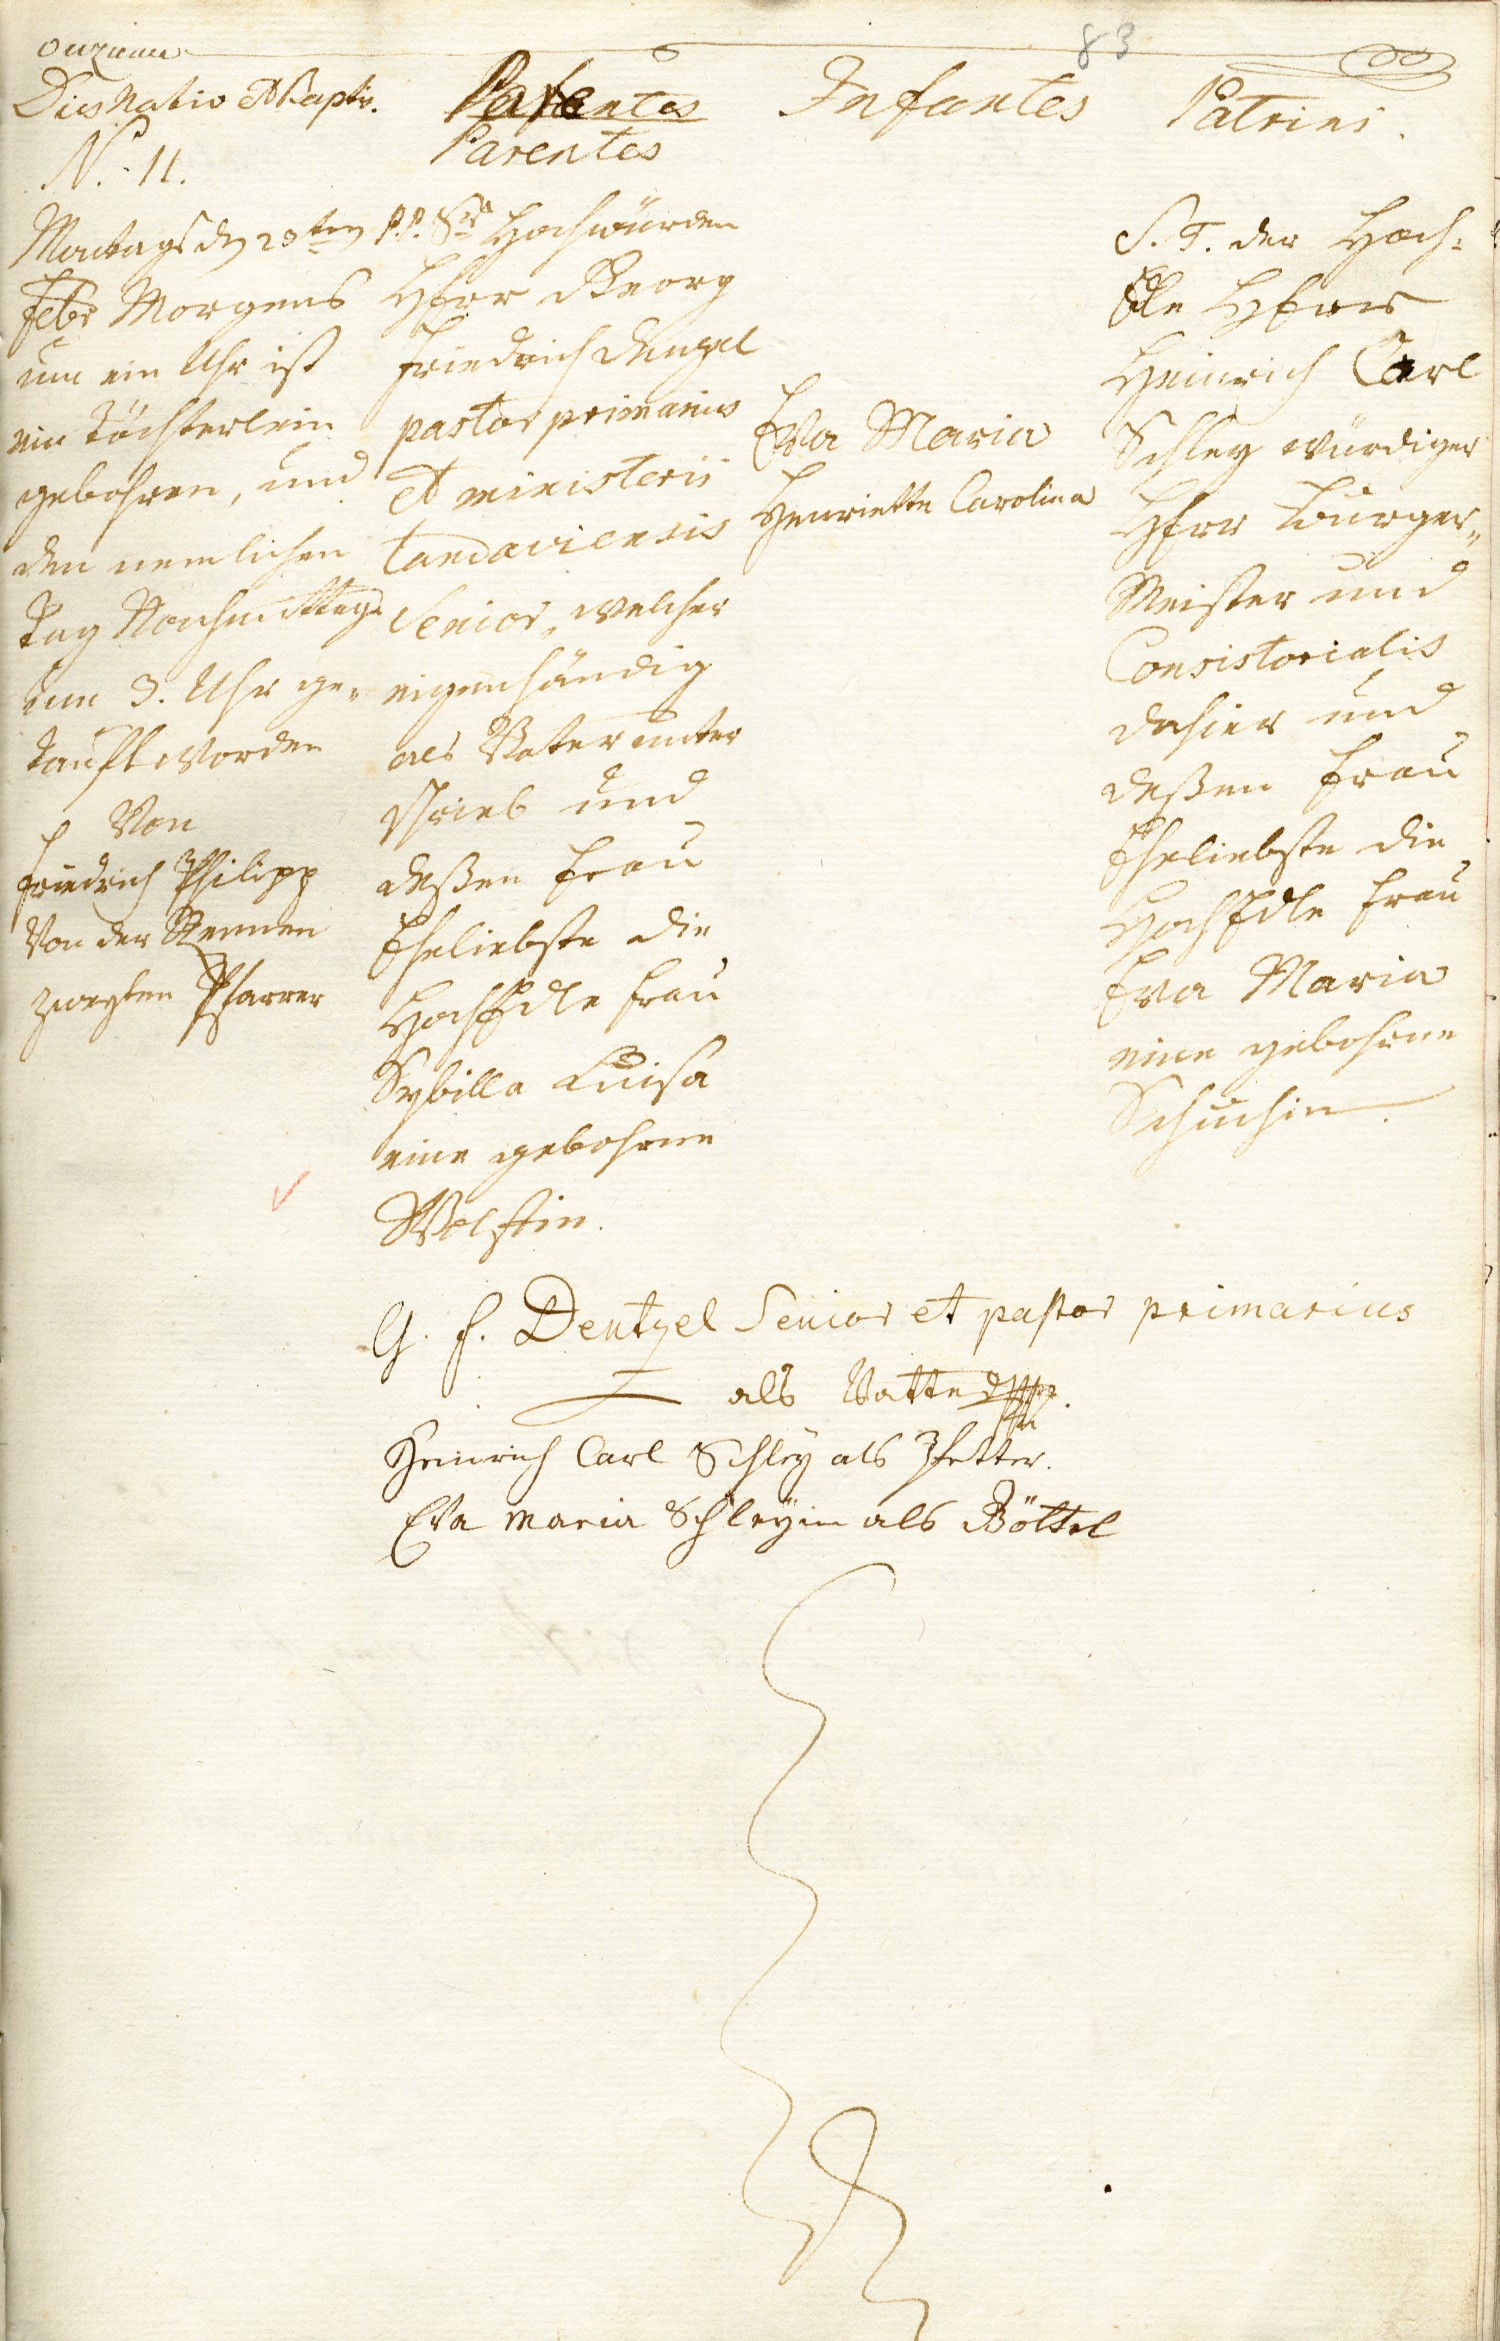 83
Dies Nativ et Baptis.
Parentes
Parentes
Infantes
Patrini.
N. 11.
Montags den 20ten
Febr Morgens
um ein Uhr ist
ein Töchterlein
gebohren, und
den nemlichen
Tag Nachmittags
um 3. Uhr ge-
tauft worden
Von
Friedrich Philipp
Von der
zweyten Pfarrer
P.P. Sr Hochwürden
Herr Georg
Friedrich Denzel
pastor primarius
et ministerii
Landaviensis
Senior, welcher
eigenhändig
als Vater unter
schrieb und
deßen Frau
Eheliebste die
HochEdle Frau
Sybilla Luisa
eine gebohrne
Wolfin.
Eva Maria
Henriette Carolina
S. T. der Hoch-
Edle Herr
Heinrich Carl
Schley würdiger
Herr Burger-
Meister und
Consistorialis
dahier und
deßen Frau
Eheliebste die
HochEdle Frau
Eva Maria
eine gebohrne
Schuchin.
G. F. Dentzel Senior et pastor primarius
als Vatter
Heinrich Carl Schley als Pfetter.
Eva Maria Schleyin als Göttel